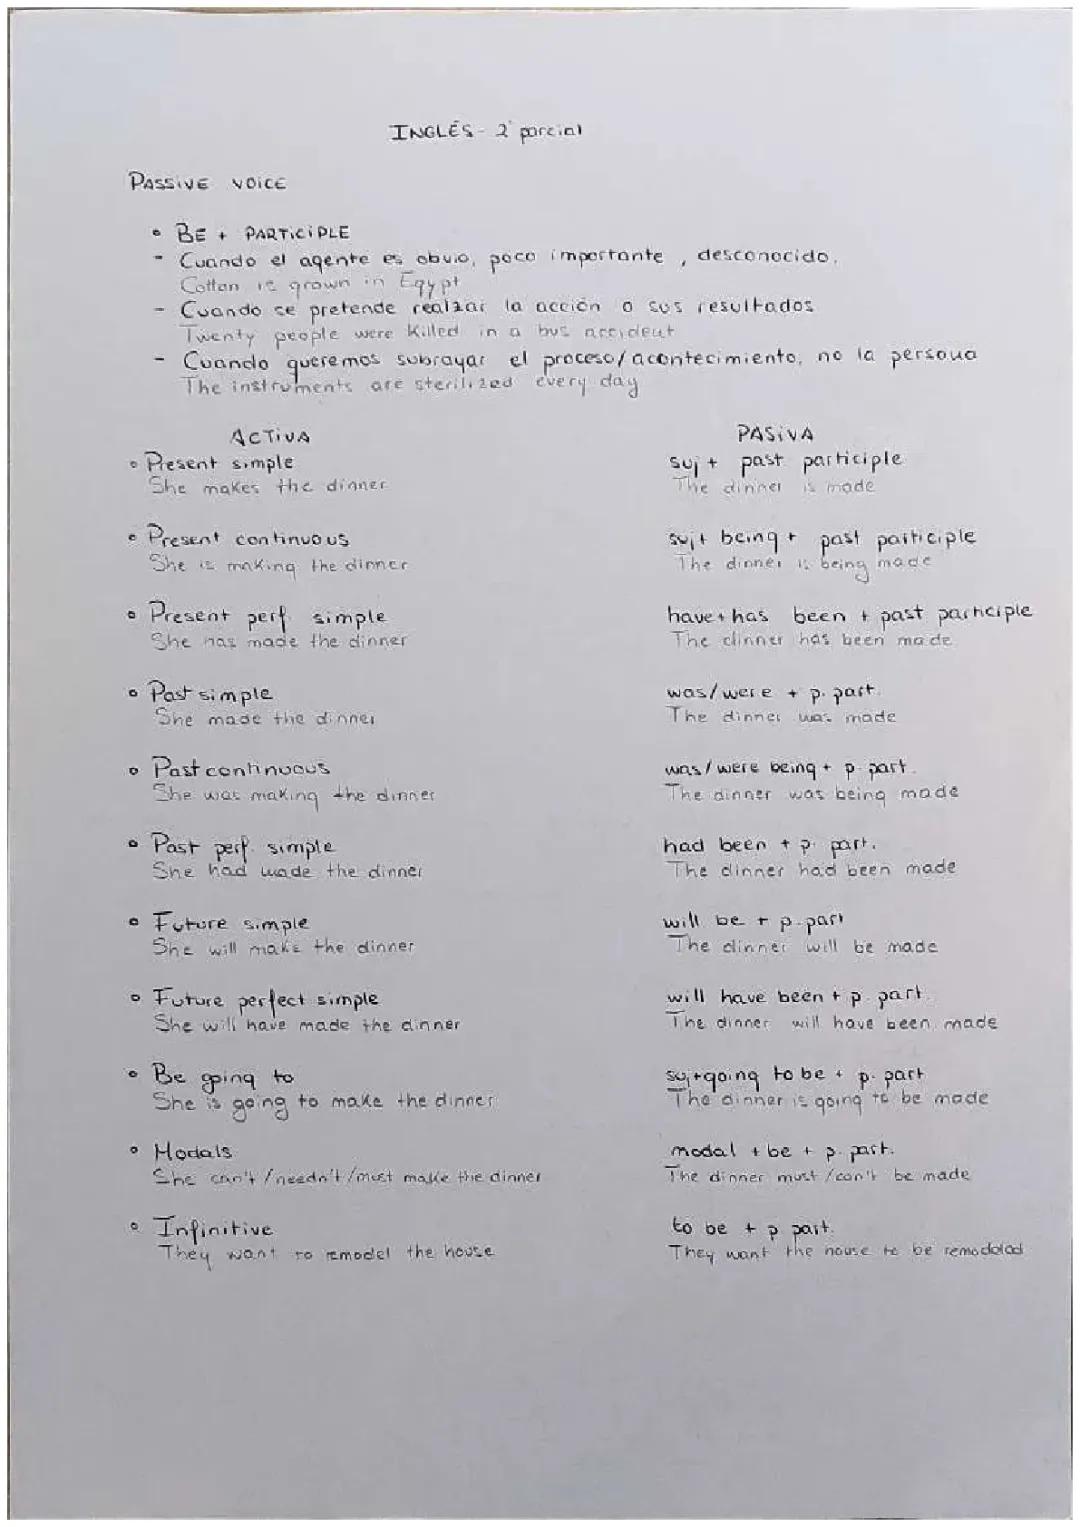 INGLÉS - 2º parcial
PASSIVE VOICE
• BE + PARTICIPLE
- Cuando el agente es obvio, poco importante, desconocido.
Cotton is grown in Egypt
- Cuando se pretende realzar la acción o sus resultados
Twenty people were killed in a bus accident
- Cuando queremos subrayar el proceso/acontecimiento, no la persona
The instruments are sterilized every day
ACTIVA PASIVA
• Present simple suj + past participle
She makes the dinner The dinner is made
• Present continuous suj + being + past participle
She is making the dinner The dinner is being made
• Present perf simple have+has been + past participle
She has made the dinner The dinner has been made
• Past simple was/were + p. part.
She made the dinner The dinner was made
• Past continuous was/were being + p. part.
She was making the dinner The dinner was being made
• Past perf. simple had been + p. part.
She had made the dinner The dinner had been made
• Future simple will be + p. part
She will make the dinner The dinner will be made
• Future perfect simple will have been + p. part.
She will have made the dinner The dinner will have been made
• Be going to suj+going to be + p. part
She is going to make the dinner The dinner is going to be made
• Modals modal + be + p. part.
She can't/needn't/must make the dinner The dinner must/can't be made
• Infinitive to be + p part.
They want to remodel the house They want the house to be remodeled